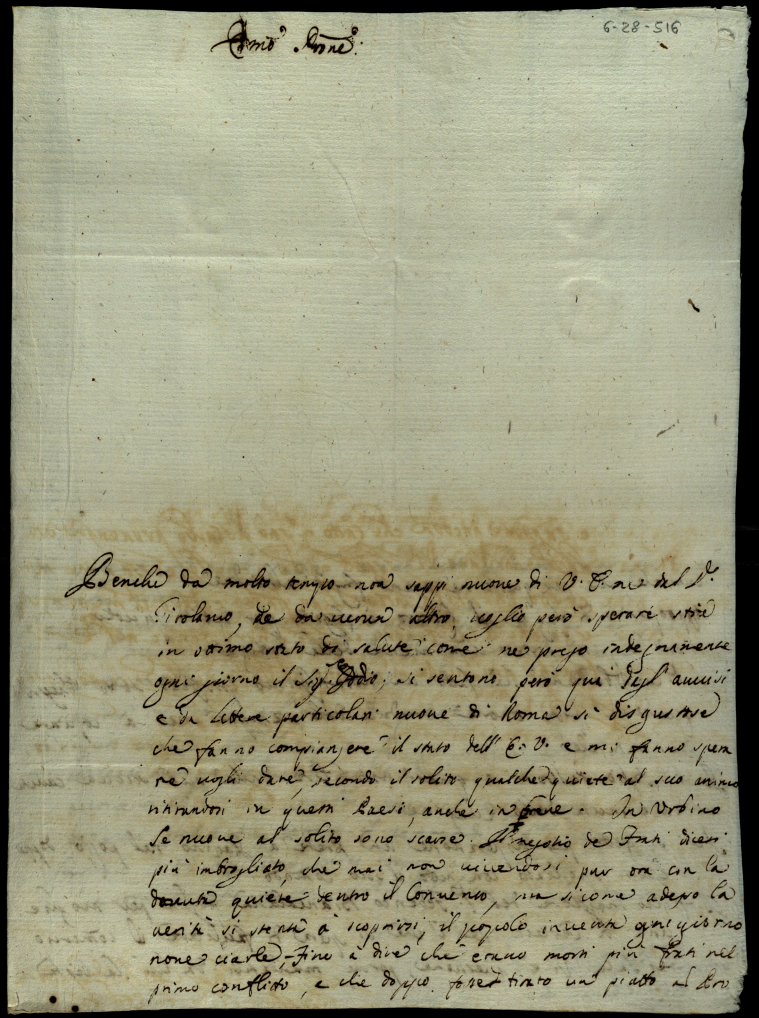 6-28-516
Em̃o Prone:
Benche da molto tempo non sappi nuove di V. E. ne dal Pʳ.
Girolamo, ne da verun altro, voglio però sperare stia
in ottimo stato di salute come ne prego indegnamente
ogni giorno il Sigʳ Iddio; si sentono però qui degl' avvisi
e da lettere particolari nuove di Roma si disgustose
che fanno compiangere il stato dell' E. V. e mi fanno spera
re vogli dare, secondo il solito qualche quiete al suo animo
ritirandosi in questi Paesi, anche in breve. In Urbino
le nuove al solito sono scarse. Il negotio de Frati dicesi
più imbrogliato, che mai non vivendosi pur ora con la
dovuta quiete dentro il Convento, ma sicome adesso la
verità si stenta à scoprirsi, il popolo inventa ogni giorno
nove ciarle, fino a dire che erano morti più frati nel
primo conflitto, e che doppo fosse tirato un piatto al Pro